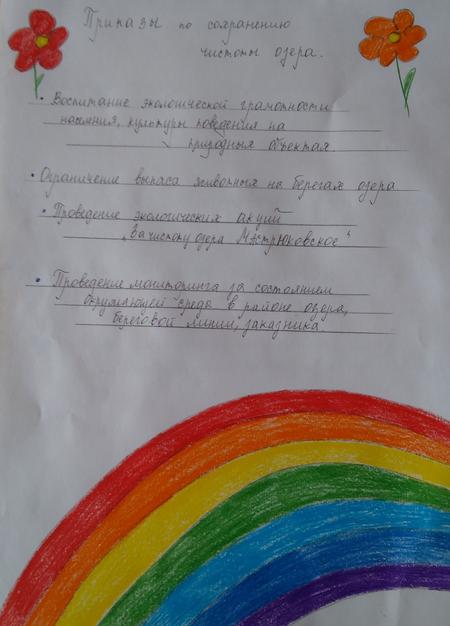 Приказы по сохранению
чистоты озера.
• Воспитание экологической грамотности
населения, культуры поведения на
природных объектах
• Ограничение выпаса животных на берегах озера
• Проведение экологических акций
„За чистоту озера Мастрюковское"
• Проведение мониторинга за состоянием
окружающей среды в районе озера,
береговой линии, заказника